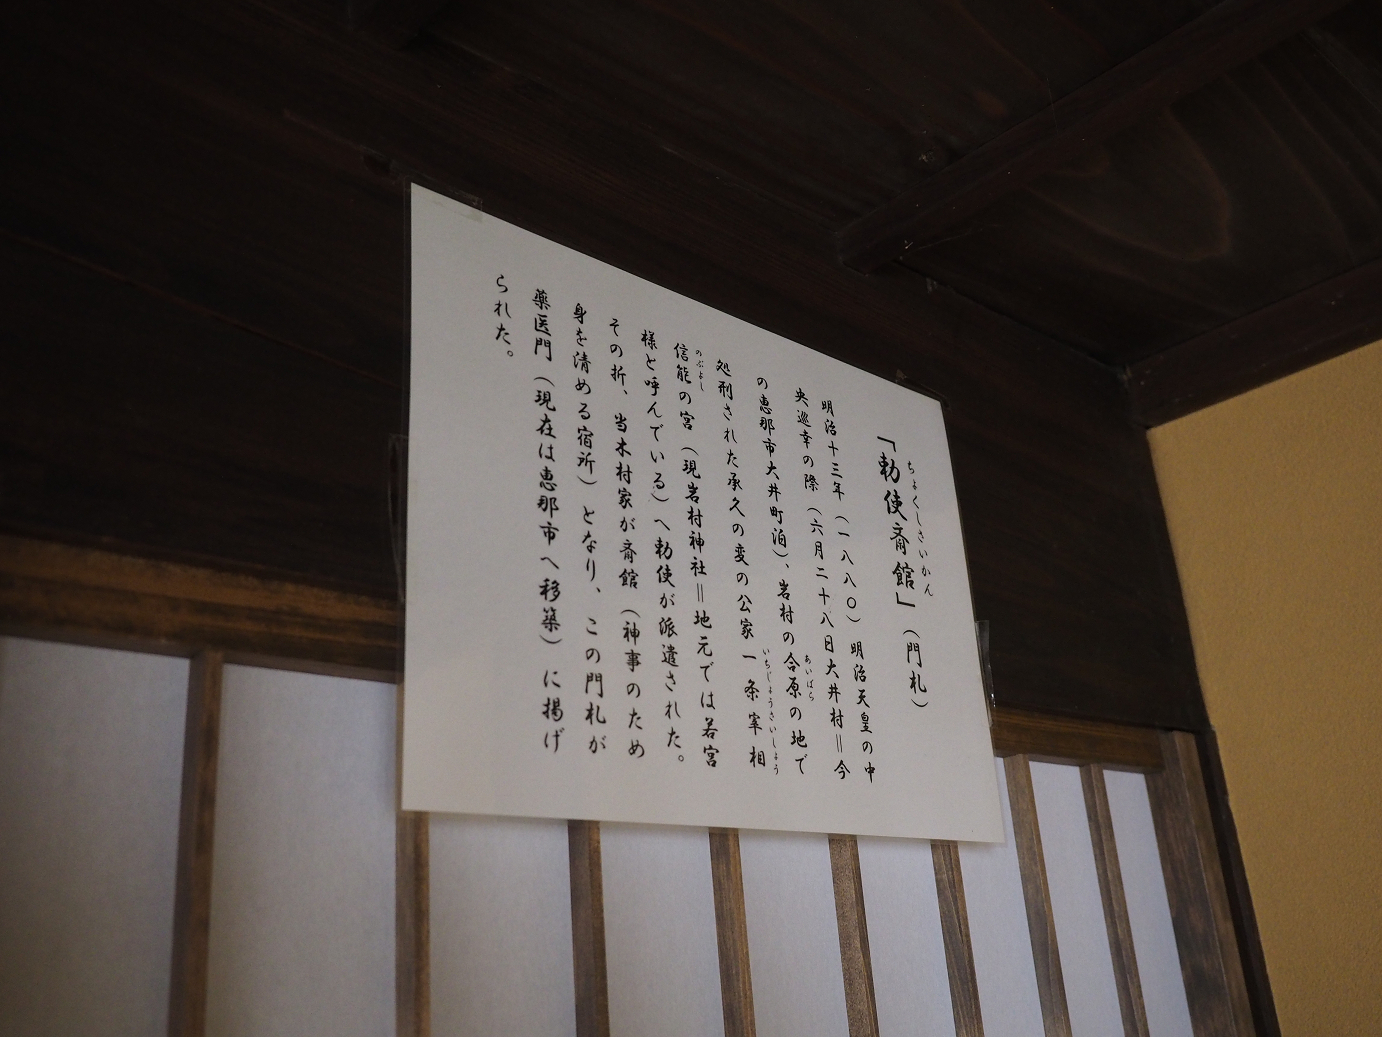 ちょくしさいかん
「勅使斎館」（門札）
明治十三年（一八八〇）明治天皇の中
央巡幸の際（六月二十八日大井村＝今
の恵那市大井町泊）、岩村の合原の地で
あいばら
処刑された承久の変の公家一条宰相
いちじょうさいしょう
信能の宮（現岩村神社＝地元では若宮
のぶよし
様と呼んでいる）へ勅使が派遣された。
その折、当木村家が斎館（神事のため
身を清める宿所）となり、この門札が
薬医門（現在は恵那市へ移築）に掲げ
られた。